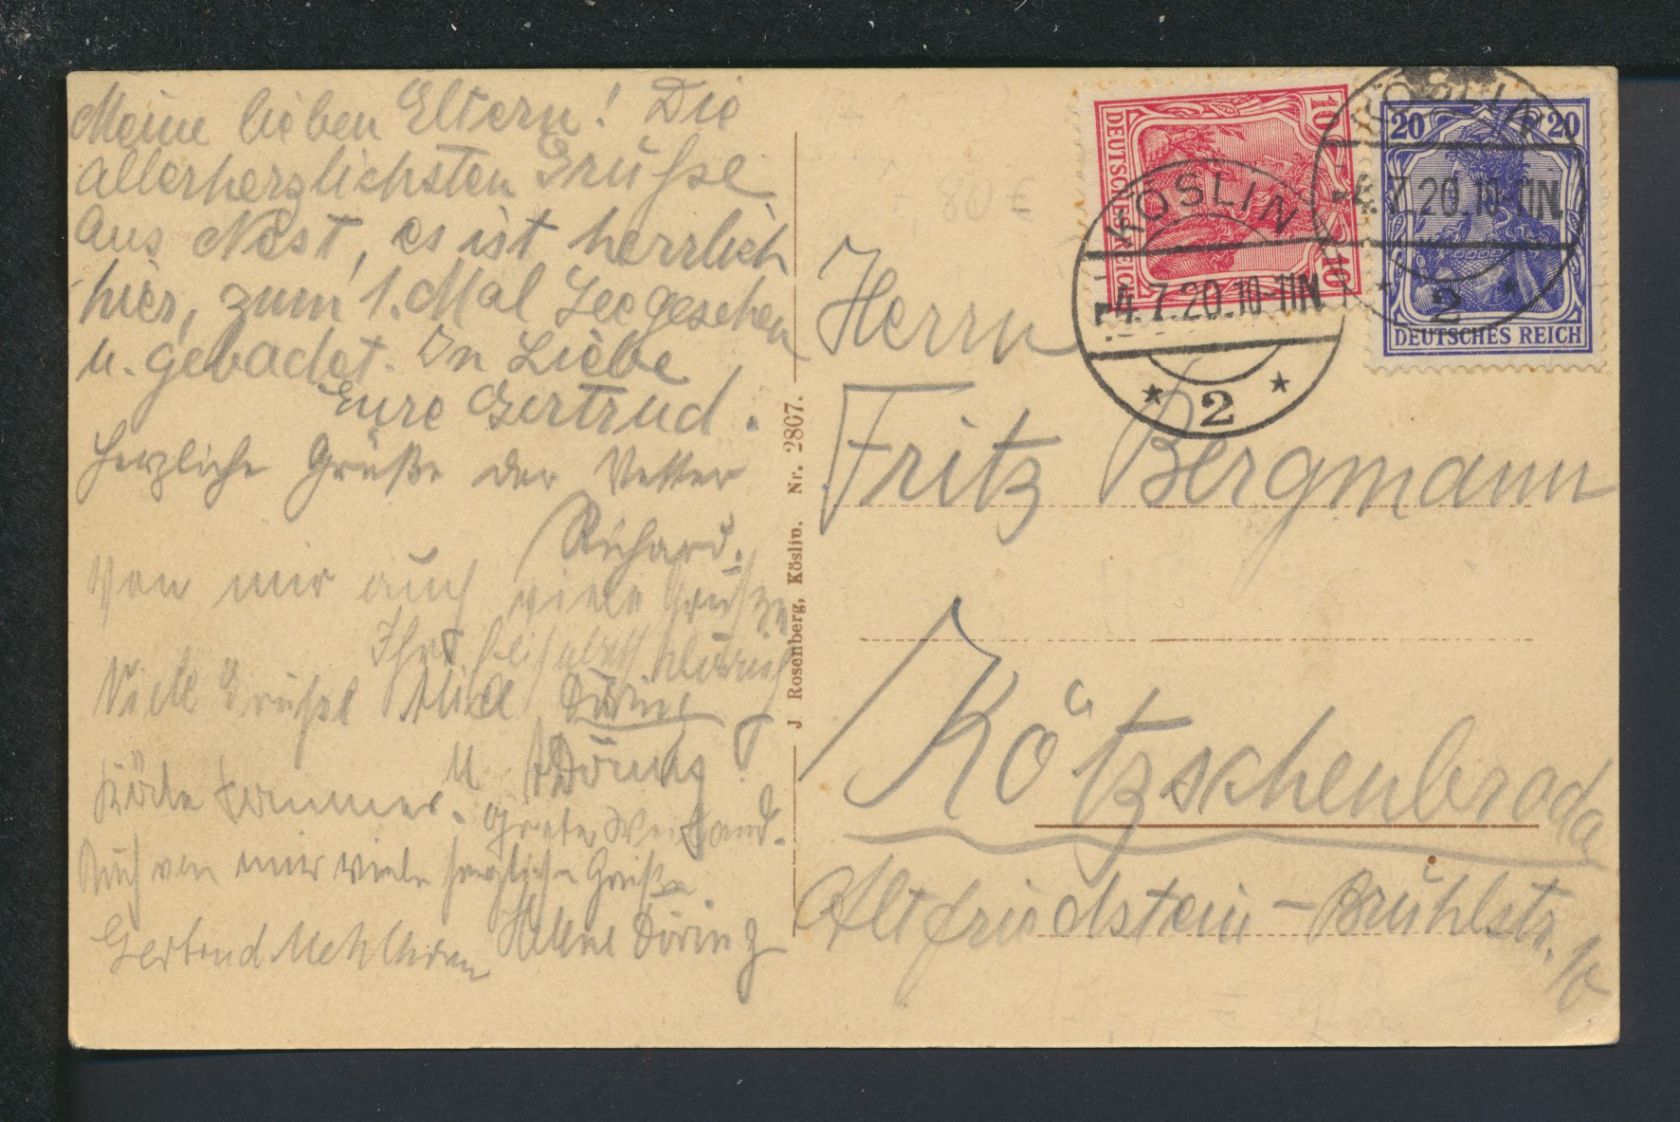 Meine lieben Eltern! Die
allerherzlichsten Grüße
aus Nest, es ist herrlich
hier, zum 1. Mal See gesehen
u. gebadet. In Liebe
Eure Gertrud.
Herzliche Grüße der Vetter
Richard.
Von mir auch viele Grüße
Ihre
Viele Grüße Döring
u. Döring
Grete
Auch von mir viele herzliche Grüße
Gertrud
Helene Döring
J. Rosenberg, Köslin. Nr. 2807.
10
DEUTSCHES REICH
10
20 20
DEUTSCHES REICH
KÖSLIN
-4.7.20.10-11N
* 2 *
KÖSLIN
-4.7.20.10-11N
* 2 *
80 €
Herrn
Fritz Bergmann
Kötzschenbroda
Altfriedstein - Brühlstr.